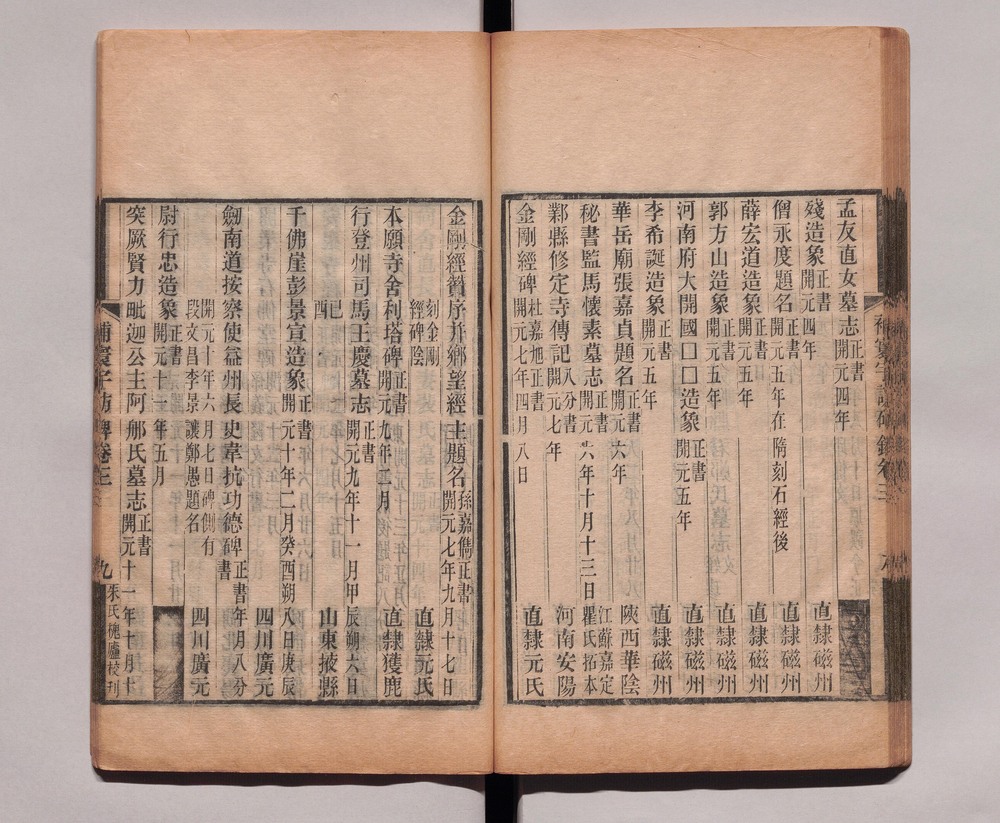 孟友直女墓志正書開元四年
殘造象正書開元四年 直隸磁州
僧永度題名正書開元五年在隋刻石經後 直隸磁州
薛宏道造象正書開元五年 直隸磁州
郭方山造象正書開元五年 直隸磁州
河南府大開國囗囗造象正書開元五年 直隸磁州
李希誕造象正書開元五年 直隸磁州
華岳廟張嘉貞題名正書開元六年 陝西華陰
秘書監馬懷素墓志正書開元六年十月十三日 江蘇嘉定瞿氏拓本
鄴縣修定寺傳記八分書開元七年 河南安陽
金剛經碑杜嘉旭正書開元七年四月八日 直隸元氏
金剛經贊序并鄉望經主題名孫嘉儁正書開元七年九月十七日
刻金剛經碑陰 直隸元氏
本願寺舍利塔碑正書開元九年二月 直隸獲鹿
行登州司馬王慶墓志正書開元九年十一月甲辰朔六日
己酉 山東掖縣
千佛崖彭景宣造象正書開元十年二月癸酉朔八日庚辰
四川廣元
劒南道按察使益州長史韋抗功德碑正書年月八分書
開元十年六月七日碑側有段文昌李景讓鄭愚題名 四川廣元
尉行忠造象正書開元十一年五月
突厥賢力毗迦公主阿郍氏墓志正書開元十一年十月十
補寰宇訪碑錄卷三
九
朱氏槐廬校刊